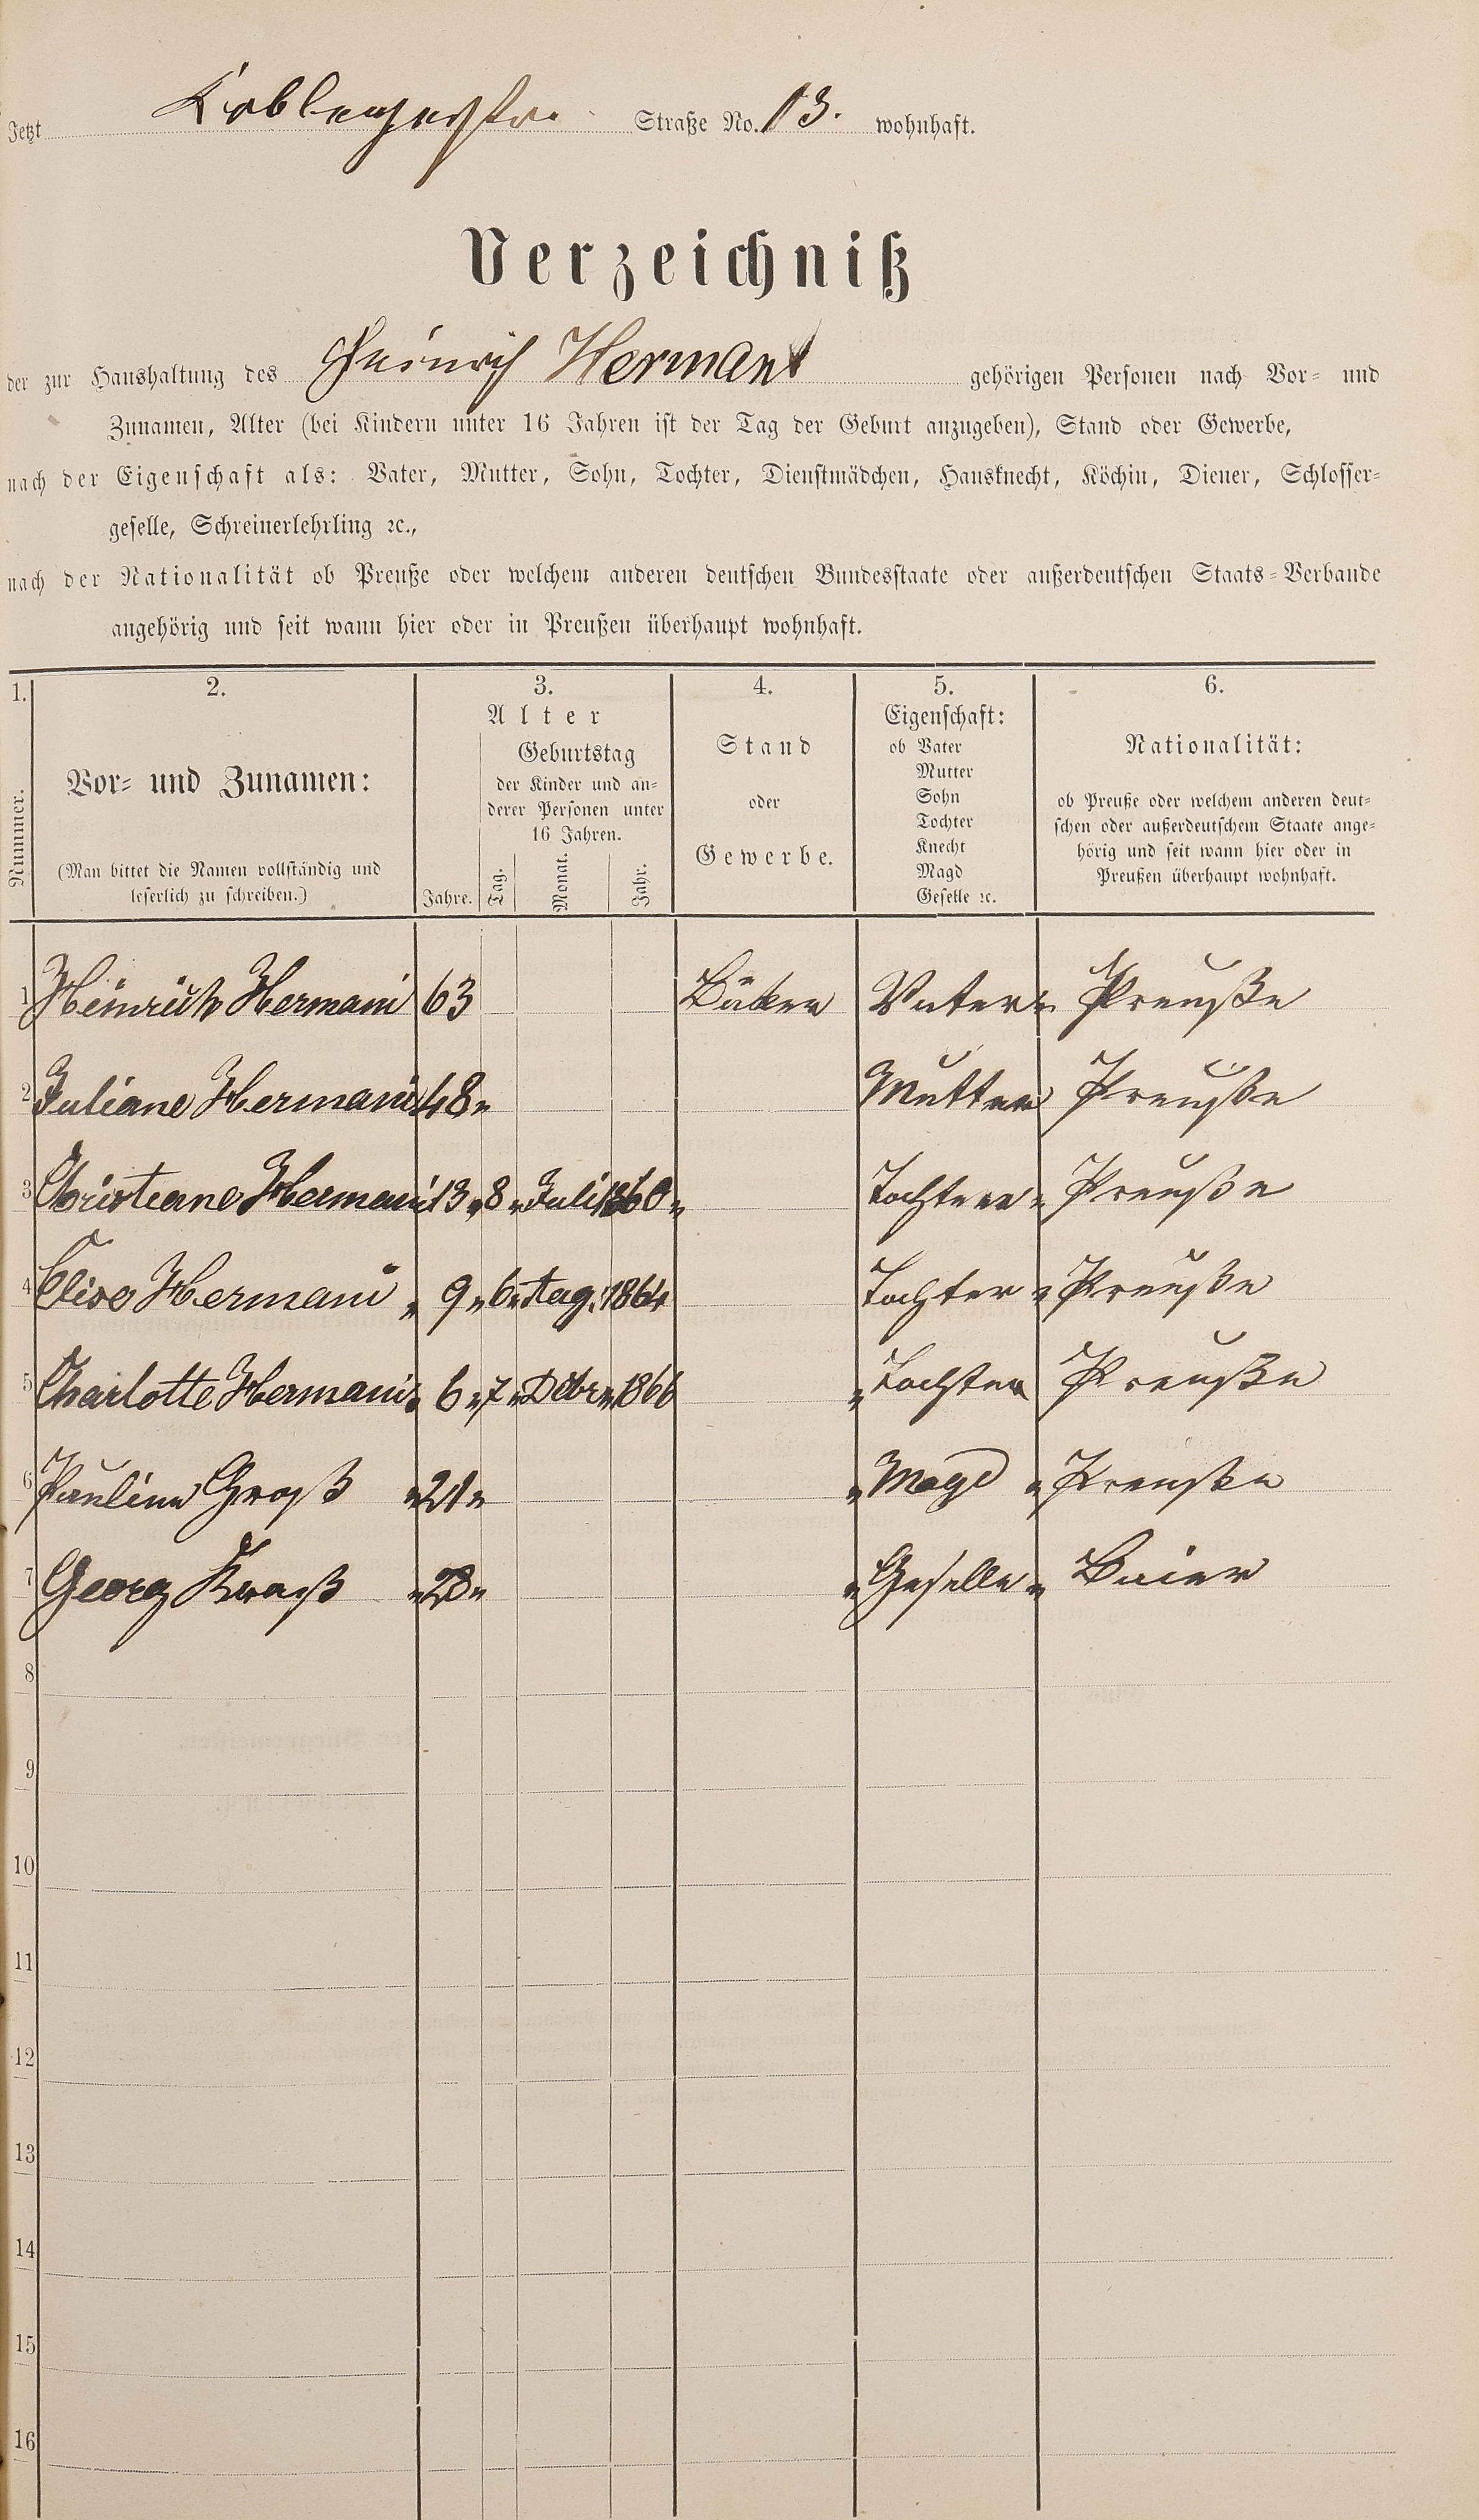 Jetzt Koblenzerstr. Straße No. 13. wohnhaft.
Verzeichniß
der zur Haushaltung des Heinrich Hermani gehörigen Personen nach Vor- und
Zunamen, Alter (bei Kindern unter 16 Jahren ist der Tag der Geburt anzugeben), Stand oder Gewerbe,
nach der Eigenschaft als: Vater, Mutter, Sohn, Tochter, Dienstmädchen, Hausknecht, Köchin, Diener, Schlosser-
geselle, Schreinerlehrling ꝛc.,
nach der Nationalität ob Preuße oder welchem anderen deutschen Bundesstaate oder außerdeutschen Staats-Verbande
angehörig und seit wann hier oder in Preußen überhaupt wohnhaft.
1. 2. 3. 4. 5. 6.
Nummer.
Vor- und Zunamen:
(Man bittet die Namen vollständig und
leserlich zu schreiben.)
Alter
Jahre.
Geburtstag
der Kinder und an-
derer Personen unter
16 Jahren.
Tag. Monat. Jahr.
Stand
oder
Gewerbe.
Eigenschaft:
ob Vater
Mutter
Sohn
Tochter
Knecht
Magd
Geselle ꝛc.
Nationalität:
ob Preuße oder welchem anderen deut-
schen oder außerdeutschem Staate ange-
hörig und seit wann hier oder in
Preußen überhaupt wohnhaft.
1 Heinrich Hermani 63 Bäker Vater " Preuße
2 Juliane Hermani 48 " Mutter Preuße
3 Christiane Hermani 13 " 8 " Juli 1860 " Tochter " Preuße
4 Elise Hermani " 9 " 6 " 1864 Tochter " Preuße
5 Charlotte Hermani " 6 " 7 " Debr " 1866 " Tochter Preuße
6 Pauline Groß " 21 " " Magd " Preuße
7 Georg Kraß " 28 " " Geselle " Baier
8
9
10
11
12
13
14
15
16